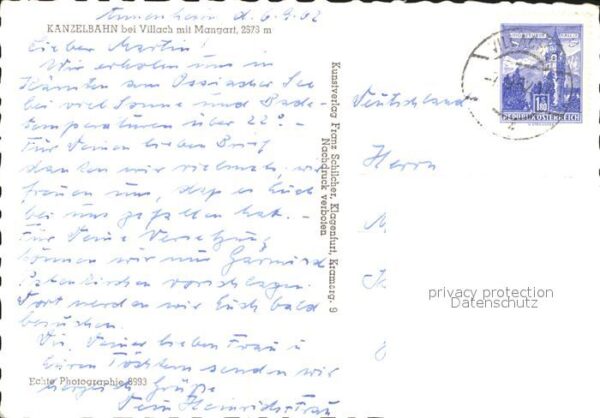 Annenheim d. 6.9.62
KANZELBAHN bei Villach mit Mangart, 2678 m
Lieber Martin!
Wir erholen uns in
Kärnten am Ossiacher See
bei viel Sonne und Bade-
temperaturen über 22° -
Für Deinen lieben Brief
danken wir vielmals, wir
freuen uns, daß es Euch
bei uns gefallen hat. -
Für Deine Versetzung
können wir nur Garmisch
Partenkirchen vorschlagen.
Dort werden wir Euch bald
besuchen.
Dir, Deiner lieben Frau u
Euren Töchtern senden wir
herzliche Grüße
Dein Heinrich u. Frau
Echte Photographie 8993
Kunstverlag Franz Schilcher, Klagenfurt, Kramerg. 9
Nachdruck verboten
1.80
REPUBLIK ÖSTERREICH
Deutschland
Herrn
privacy protection
Datenschutz